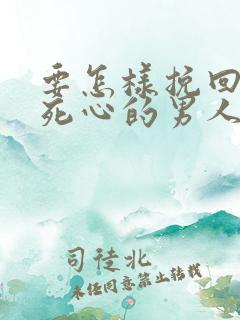 要怎様挽回
死心的男人
司徒北
未经同意禁止转载